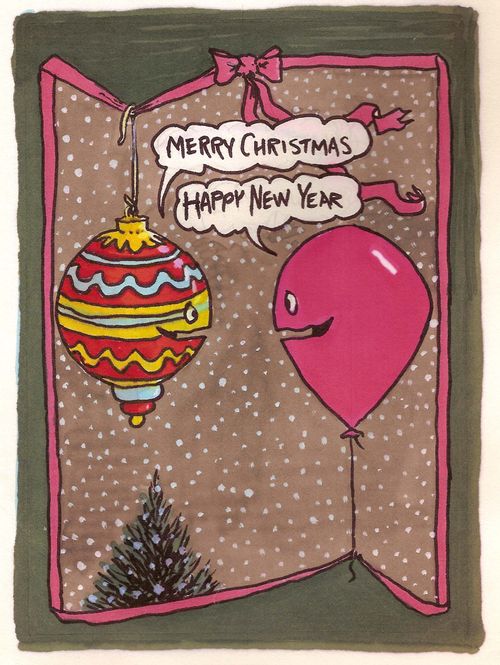 MERRY CHRISTMAS
HAPPY NEW YEAR